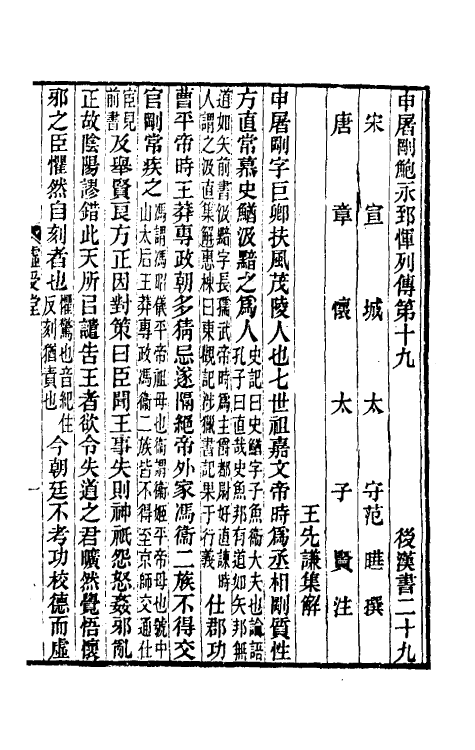 申屠剛鮑永郅惲列傳第十九　後漢書二十九
宋宣城太守范曄撰
唐章懷太子賢注
王先謙集解
申屠剛字巨卿扶風茂陵人也七世祖嘉文帝時爲丞相剛質性
方直常慕史鰌汲黯之爲人史記曰史鰌字子魚衞大夫也論語孔子曰直哉史魚邦有道如矢邦無
道如矢前書汲黯字長孺武帝時爲主爵都尉好直諫時人謂之汲直集解惠棟曰東觀記涉獵書記果于行義仕郡功
曹平帝時王莽專政朝多猜忌遂隔絕帝外家馮衞二族不得交
官剛常疾之馮謂馮昭儀平帝祖母也衞謂衞姬平帝母也號中山太后王莽專政馮衞二族皆不得至京師交通仕
宦見前書及舉賢良方正因對策曰臣聞王事失則神祇怨怒姦邪亂
正故陰陽謬錯此天所㠯譴告王者欲令失道之君曠然覺悟懷
邪之臣懼然自刻者也懼驚也音紀住反刻猶責也今朝廷不考功校德而虛
虛受堂
一